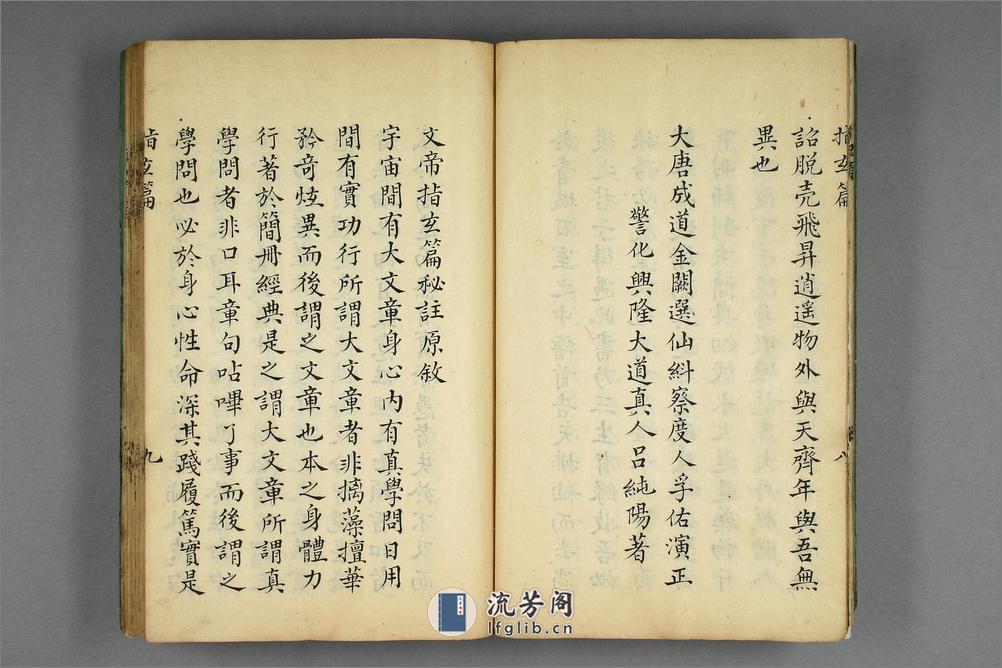 指玄篇 八
詔脱壳飛昇逍遥物外與天齊年與吾無
異也
大唐成道金闕選仙糾察度人孚佑演正
警化興隆大道真人呂純陽著
文帝指玄篇秘註原敘
宇宙間有大文章身心内有真學問日用
間有實功行所謂大文章者非摛藻擅華
矜奇炫異而後謂之文章也本之身體力
行著於簡冊經典是之謂大文章所謂真
學問者非口耳章句呫嗶了事而後謂之
學問也必於身心性命深其踐履篤實是
指玄篇 九
流芳阁
lfglib.cn